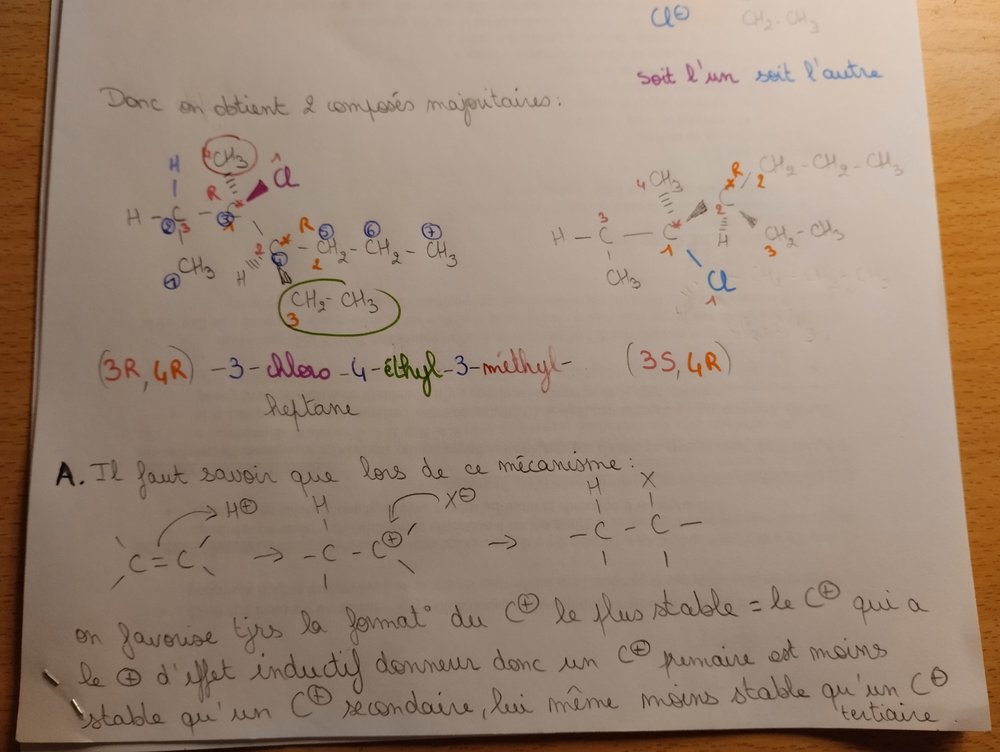 Cl⊖ CH2-CH3
soit l'un soit l'autre
Donc on obtient 2 composés majoritaires :
H CH3 1 Cl
H - C - C R
2 3 3 1
1 CH3
2 C* R - CH2 - CH2 - CH3
4 5 6 7
H 2
CH2 - CH3
3
4 CH3 R CH2 - CH2 - CH3
* C 2
H - C - C* 2
3 1 H CH2 - CH3
CH3 3
Cl
1
(3R, 4R) -3- chloro -4- éthyl -3- méthyl- (3S, 4R)
heptane
A. Il faut savoir que lors de ce mécanisme :
H⊕ H X⊖ H X
C = C → - C - C⊕ → - C - C -
on favorise tjrs la format° du C⊕ le plus stable = le C⊕ qui a
le ⊕ d'effet inductif donneur donc un C⊕ primaire est moins
stable qu'un C⊕ secondaire, lui même moins stable qu'un C⊖
tertiaire